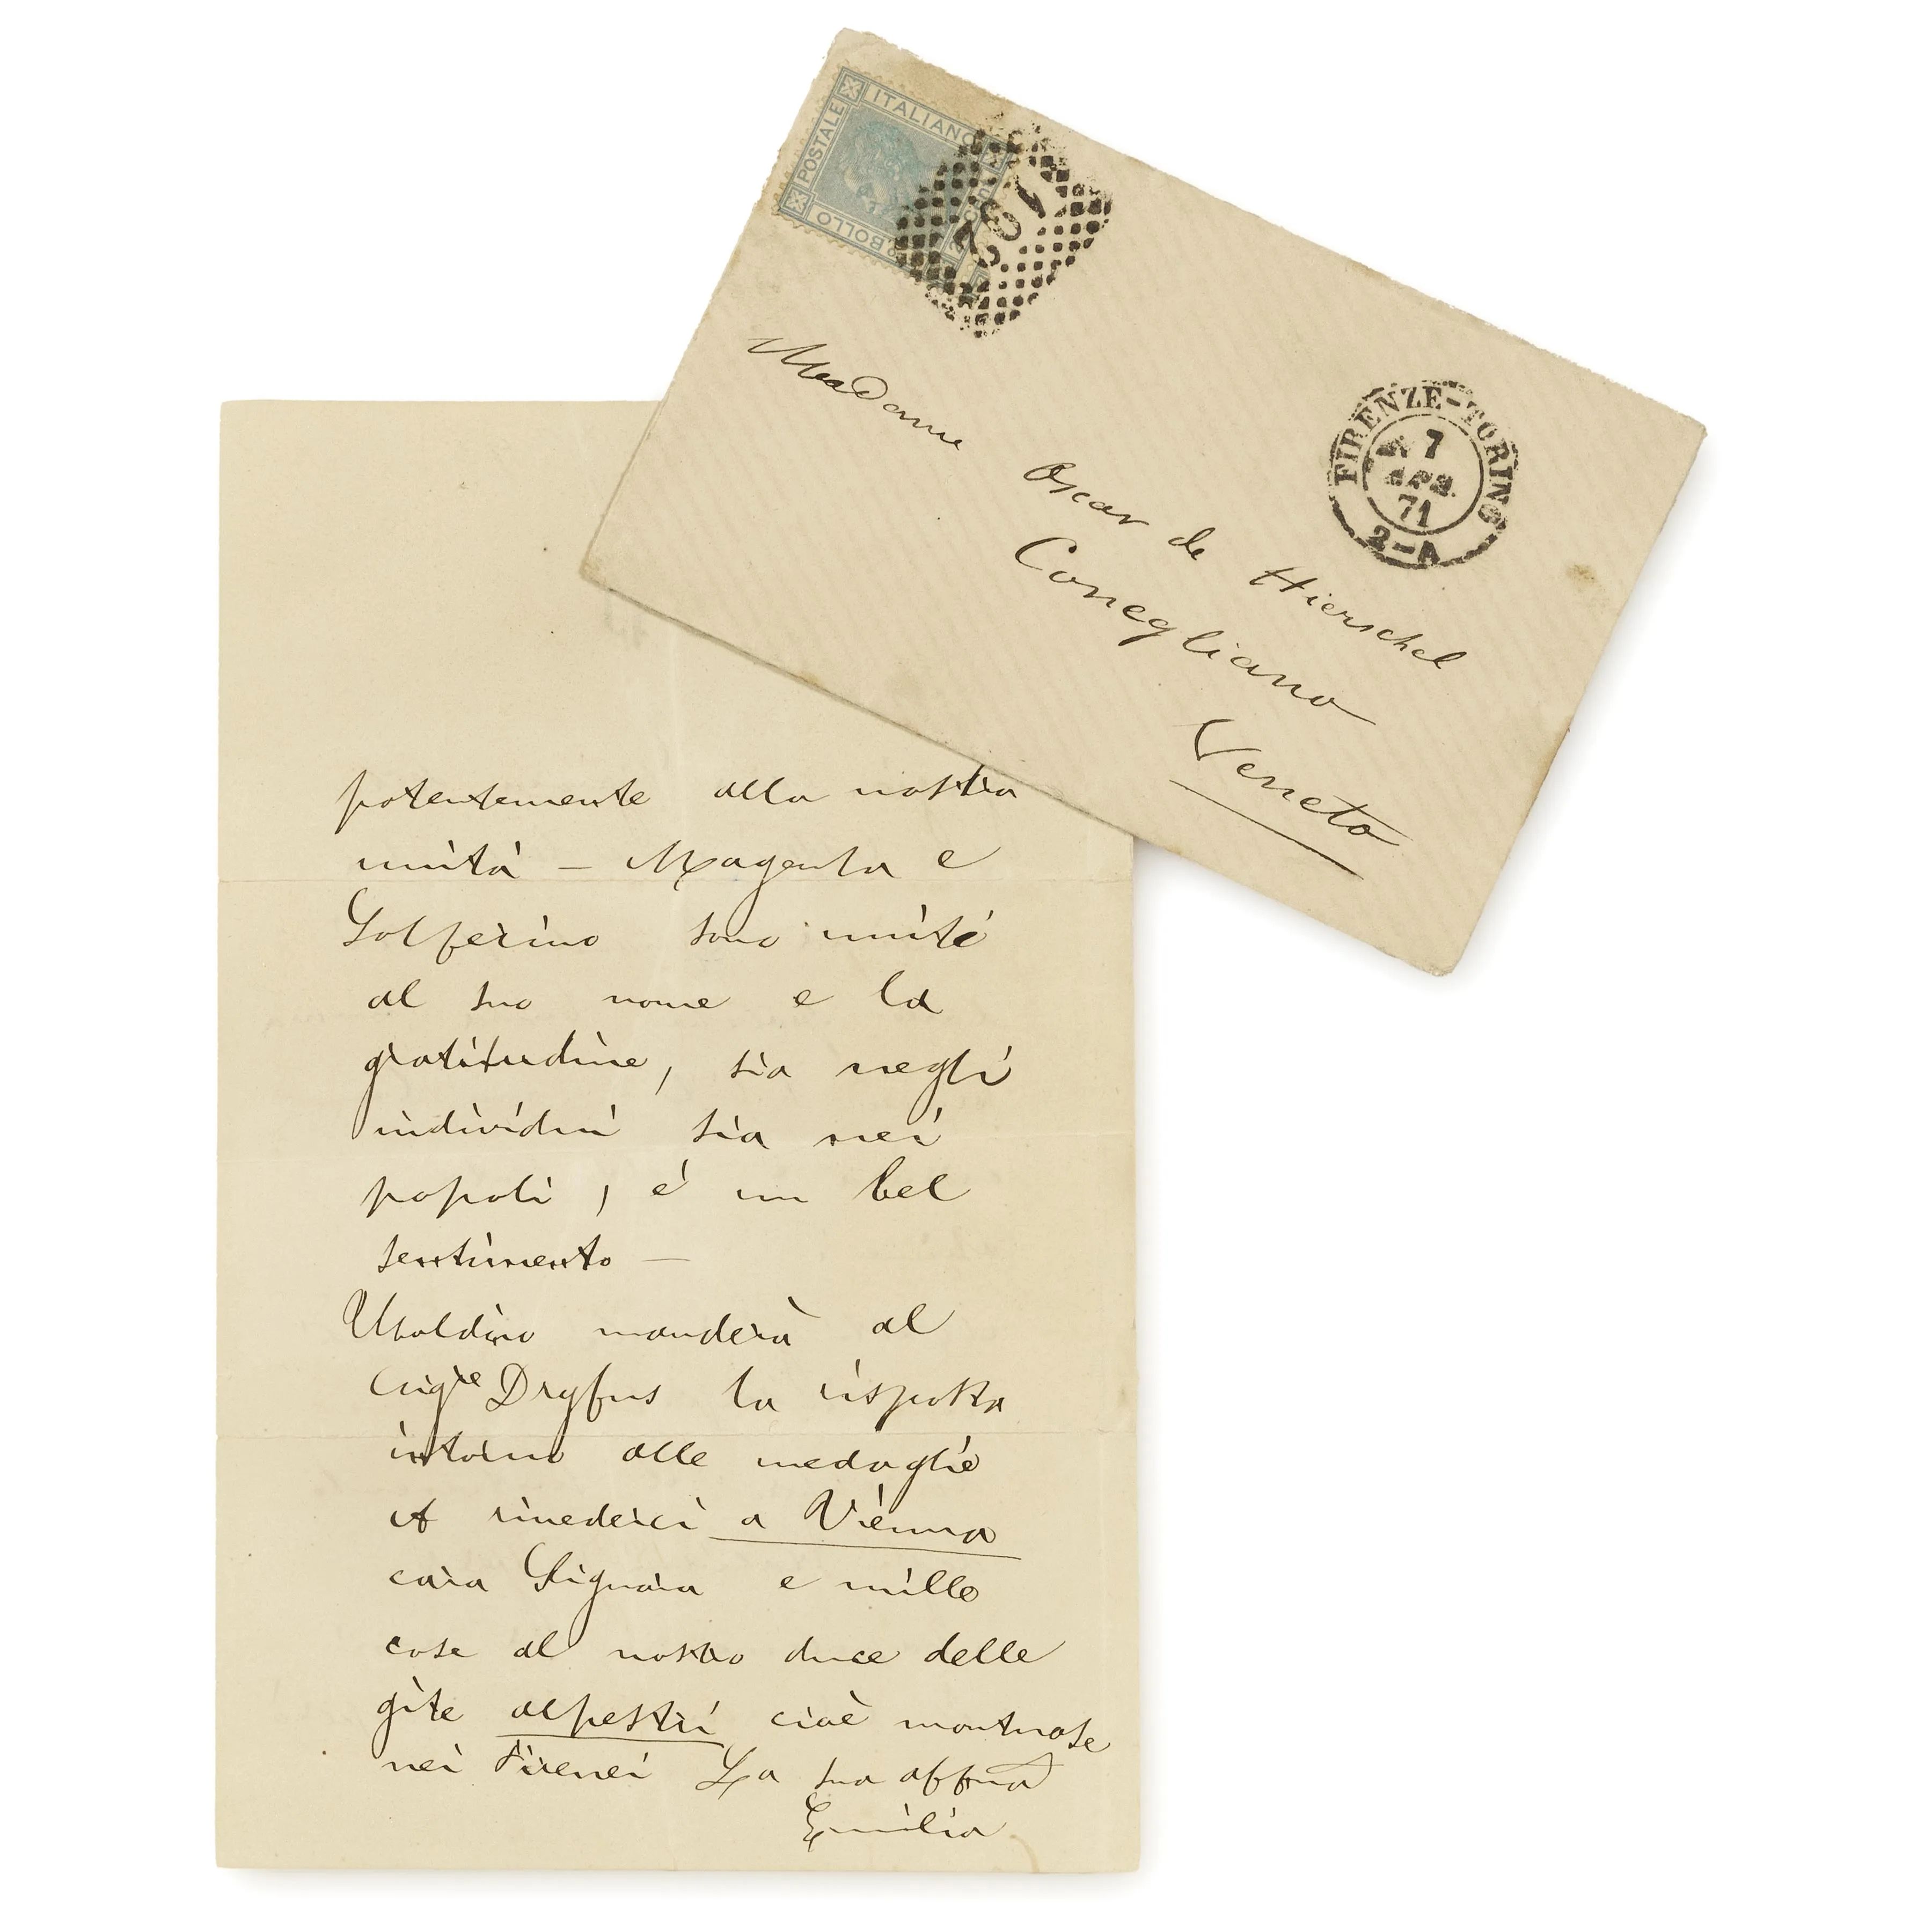 POSTALE
ITALIANO
BOLLO
FIRENZE-TORINO
7
APR
71
2-A
Madame
Oscar de Hierschel
Conegliano
Veneto
potentemente alla nostra
unità – Magenta e
Solferino sono unite
al suo nome e la
gratitudine, sia negli
individui sia nei
popoli, é un bel
sentimento –
Ubaldino manderà al
Dryfus la risposta
intorno alle medaglie
A rivederci a Vienna
cara Signora e mille
cose al nostro duce delle
gite alpestri cioè montuose
nei Pirenei La sua affma
Emilia